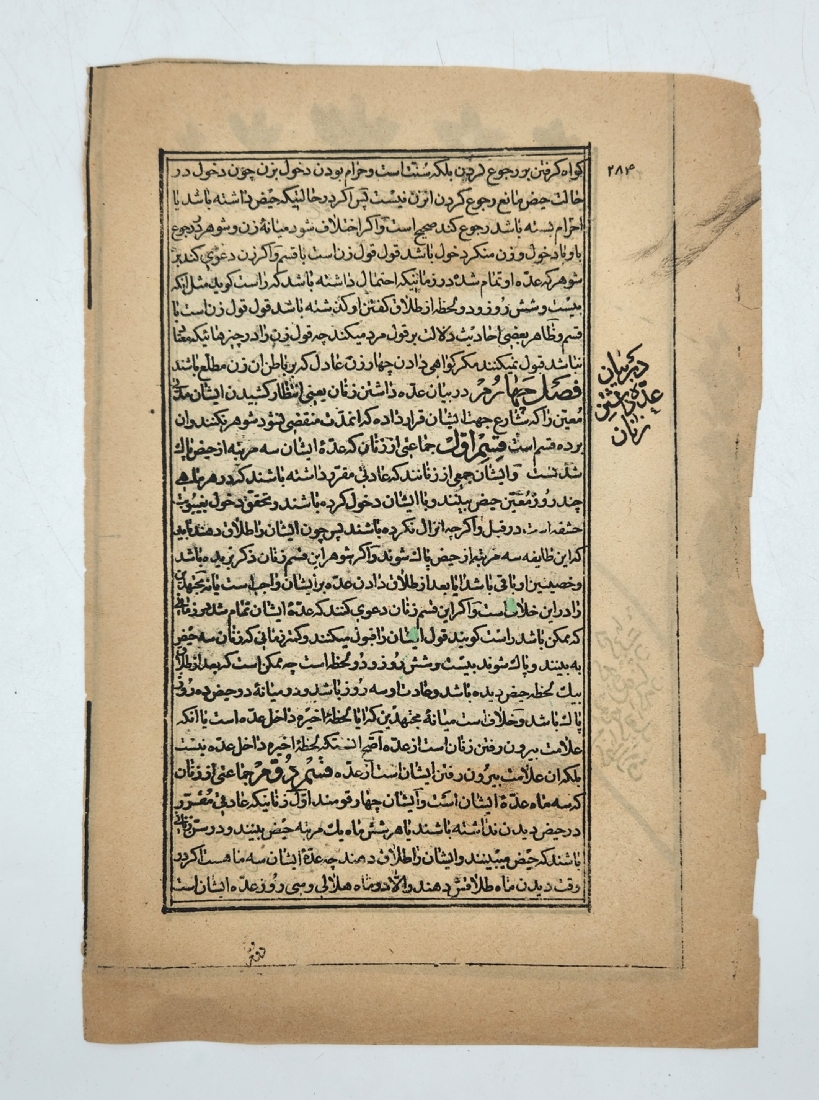 ۲۸۴
گواه گرفتن بر رجوع کردن بلکه سنت است و حرام بودن دخول بزن چون دخول در
حالت حیض مانع رجوع کردن ازن نیست پس اکر در حالتیکه حیض داشته باشد یا
احرام بسته باشد رجوع کند صحیح است و اکر اختلاف شود میانهٔ زن و شوهر در رجوع
با وبا دخول و زن منکر دخول باشد قول قول زن است با قسم و اکر زن دعوی کند بر
شوهر که عدهٔ او تمام شده در زمانیکه احتمال داشته باشد که راست کوید مثل انکه
بیست و شش روز و دو لحظه از طلاق کفتن او کذشته باشد قول قول زن است با
قسم و ظاهر بعضی احادیث دلالت بر قول مرد میکند چه قول زن را در چیزهائیکه
نباشد قبول نمیکنند مکر کواهی دادن چهار زن عادل که بر باطن ان زن مطلع باشند
فصل چهارم در بیان عده داشتن زنان یعنی انتظار کشیدن ایشان مدتی
معین را که شارع جهة ایشان قرار داده که تا انمدت منقضی نشود شوهر نکنند و ان
بر ده قسم است قسم اول جماعتی از زنان که عدهٔ ایشان سه مرتبه از حیض پاک
شدنست و ایشان جمعی از زنانند که عادتی مقرر داشته باشند که در هر ماهی
چند روز معین حیض بینند و با ایشان دخول کرده باشند و تحقق دخول بغیبوبت
حشفه است در قبل و اکرچه انزال نکرده باشند پس چون ایشان را طلاق دهند باید
که این طایفه سه مرتبه از حیض پاک شوند و اکر شوهر این قسم زنان ذکر بریده باشد
و خصیتین او باقی باشد ایا بعد از طلاق دادن عده بر ایشان واجب است یا نه مجتهدین
را در این خلاف است و اکر این قسم زنان دعوی کنند که عدهٔ ایشان تمام شد در زمانی
که ممکن باشد راست کویند قول ایشان را قبول میکنند و کمتر زمانی که زنان سه حیض
به بینند و پاک شوند بیست و شش روز و دو لحظه است چه ممکن است که بعد از طلاق
بیک لحظه حیض دیده باشد و عادت او سه روز باشد و در میانهٔ دو حیض ده روز
پاک باشد و خلاف است میانهٔ مجتهدین که ایا لحظهٔ اخیره داخل عده است یا انکه
علامت بیرون رفتن زنان است از عده اصح انستکه لحظهٔ اخیره داخل عده نیست
بلکه ان علامت بیرون رفتن ایشان است از عده قسم دوم جماعتی از زنان
که سه ماه عدهٔ ایشان است و ایشان چهار قومند اول زنانیکه عادتی مقرر
در حیض دیدن نداشته باشند یا هر شش ماه یک مرتبه حیض بینند و در سن زنانی
باشند که حیض میبینند و ایشان را طلاق دهند چه عدهٔ ایشان سه ماهست اکر در
وقت دیدن ماه طلاقش دهند و الا دو ماه هلالی و سی روز عدهٔ ایشان است
در بیان
عده داشتن
زنان